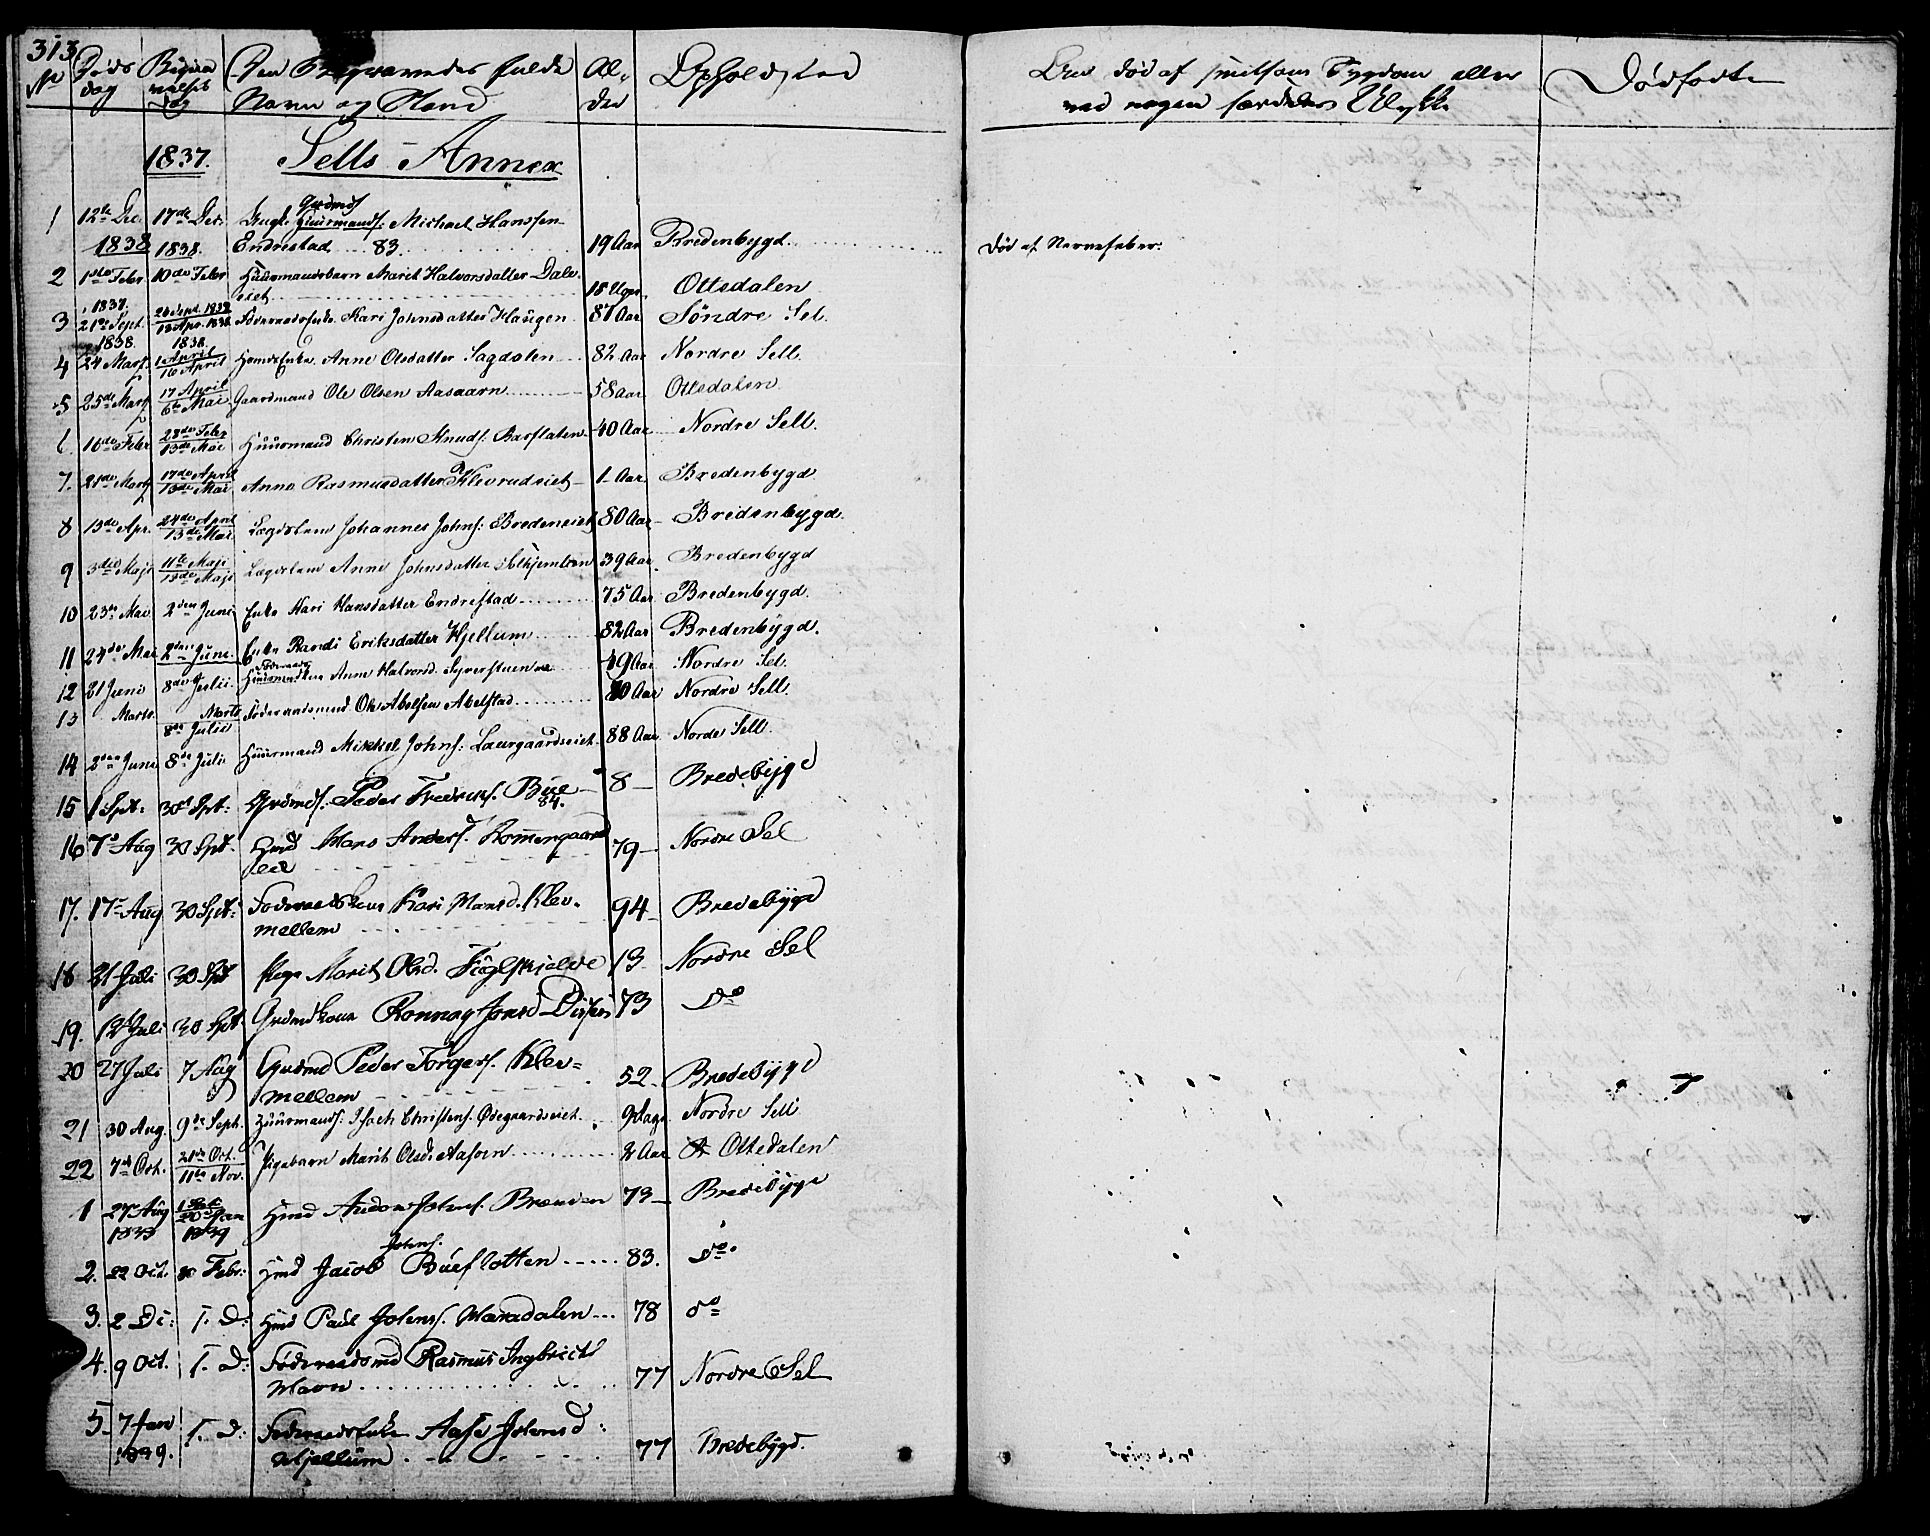 313
No Døds dag Begravelses Dag Den Begravedes fulde Navn og Stand Alder Opholdsted Om død af smitsom Sygdom eller ved nogen særdeles Ulykke Dødfødte
1837. Sells Annex
1 12te Dec. 17de Dec. Ungk. Grdmds Huusmands: Michael Hanssen
1838 1838. Endrestad 83. 19 Aar Bredenbygd. Død af Nervefeber.
2 1ste Febr 10de Febr Huusmandsbarn Marit Halvorsdatter Dale-
eiet 18 Uger. Ottedalen
3 1837. 21de Sept. 26 Sept. 1837 13 Apr. 1838 Føderaadsenke Kari Johnsdatter Haugen 87 Aar Søndre Sel.
1838. 1838.
4 24 Marts 1 April 16 April Anne Olsdatter Sagdalen 82 Aar Nordre Sell.
5 25de Marts 17 April 6te Mai Gaardmand Ole Olsen Aasaarn 58 Aar Ottedalen
6. 16de Febr 28de Febr 13de Mai Huusmand Christen Knuds: Barflaten 40 Aar Nordre Sell.
7. 21de Marts 17de April 13de Mai Anne Rasmusdatter Klevrudeiet 1 Aar Bredenbygd
8 13de Apr. 24de April 13de Mai Lægdslem Johannes Johns: Bredeneiet 80 Aar Bredenbygd.
9 3die Maji 11te Maji 13de Maji Lægdslem Anne Johnsdatter 39 Aar Bredenbygd
10 23de Mai 2den Juni Enke Kari Hansdatter Endrestad 75 Aar Bredenbygd.
11 24de Mai 2den Juni. Enke Randi Eriksdatter Hjellum 82 Aar Bredenbygd.
12 21 Juni 8de Julii Føderaads Anne Halvorsd. Syverstuen 49 Aar Nordre Sel.
13 Marts. Marts 8de Julii Føderaadsmand Ole Abelsen Abelstad 80 Aar Nordre Sell.
14 2den Juni 8de Juli Huusmand Mikkel Johns: Laurgaardseiet. 88 Aar Nordre Sell.
15 1 Spt: 30te Spt: Grdmds. Peder Fredriks. Bue 84. 8 Bredebygd
16 7de Aug 30 Spt. Hmd Hans Anders. Romengaard
eie 79 Nordre Sel
17. 17de Aug 30 Spt: Føderaadskone Kari Hansd. Klev-
mellem 94 Bredebygd
18 21 Juli 30 Spt Pige Marit Olsd. Fuglskjelde 13 Nordre Sel
19. 12 Juli 30 Spt. Grdmdkone Ronnog Jonsd 73 do
20 27 Juli 7 Aug Grdmd Peder Torgers. Klev-
mellem 52 Bredebygd
21 30 Aug. 9de Sept. Huusmands. Isach Christens. Ødegaardseiet. 9 Dage Nordre Sell
22 7de Oct. 21de Oct. 11te Nov. Pigebarn Marit Olsd. Aasen 2 Aar Ottedalen
1 27 Aug 1838 20 Jan 1839 Hmd Anders Johns. Brenden 73 Bredebygd
2. 22 Oct. Febr: Hmd Jacob Johns. Bueflotten 83. do.
3. 2 De: T. D: Hmd Paul Johns. 78 do
4. 9 Oct. T. D: Føderaadsmd Rasmus Ingbricts
Havn 77 Nordre Sel
5. 7 Jan T. D: Føderaadsenke Aase Johnsd:
1839. Hjellum 77 Bredebygd.